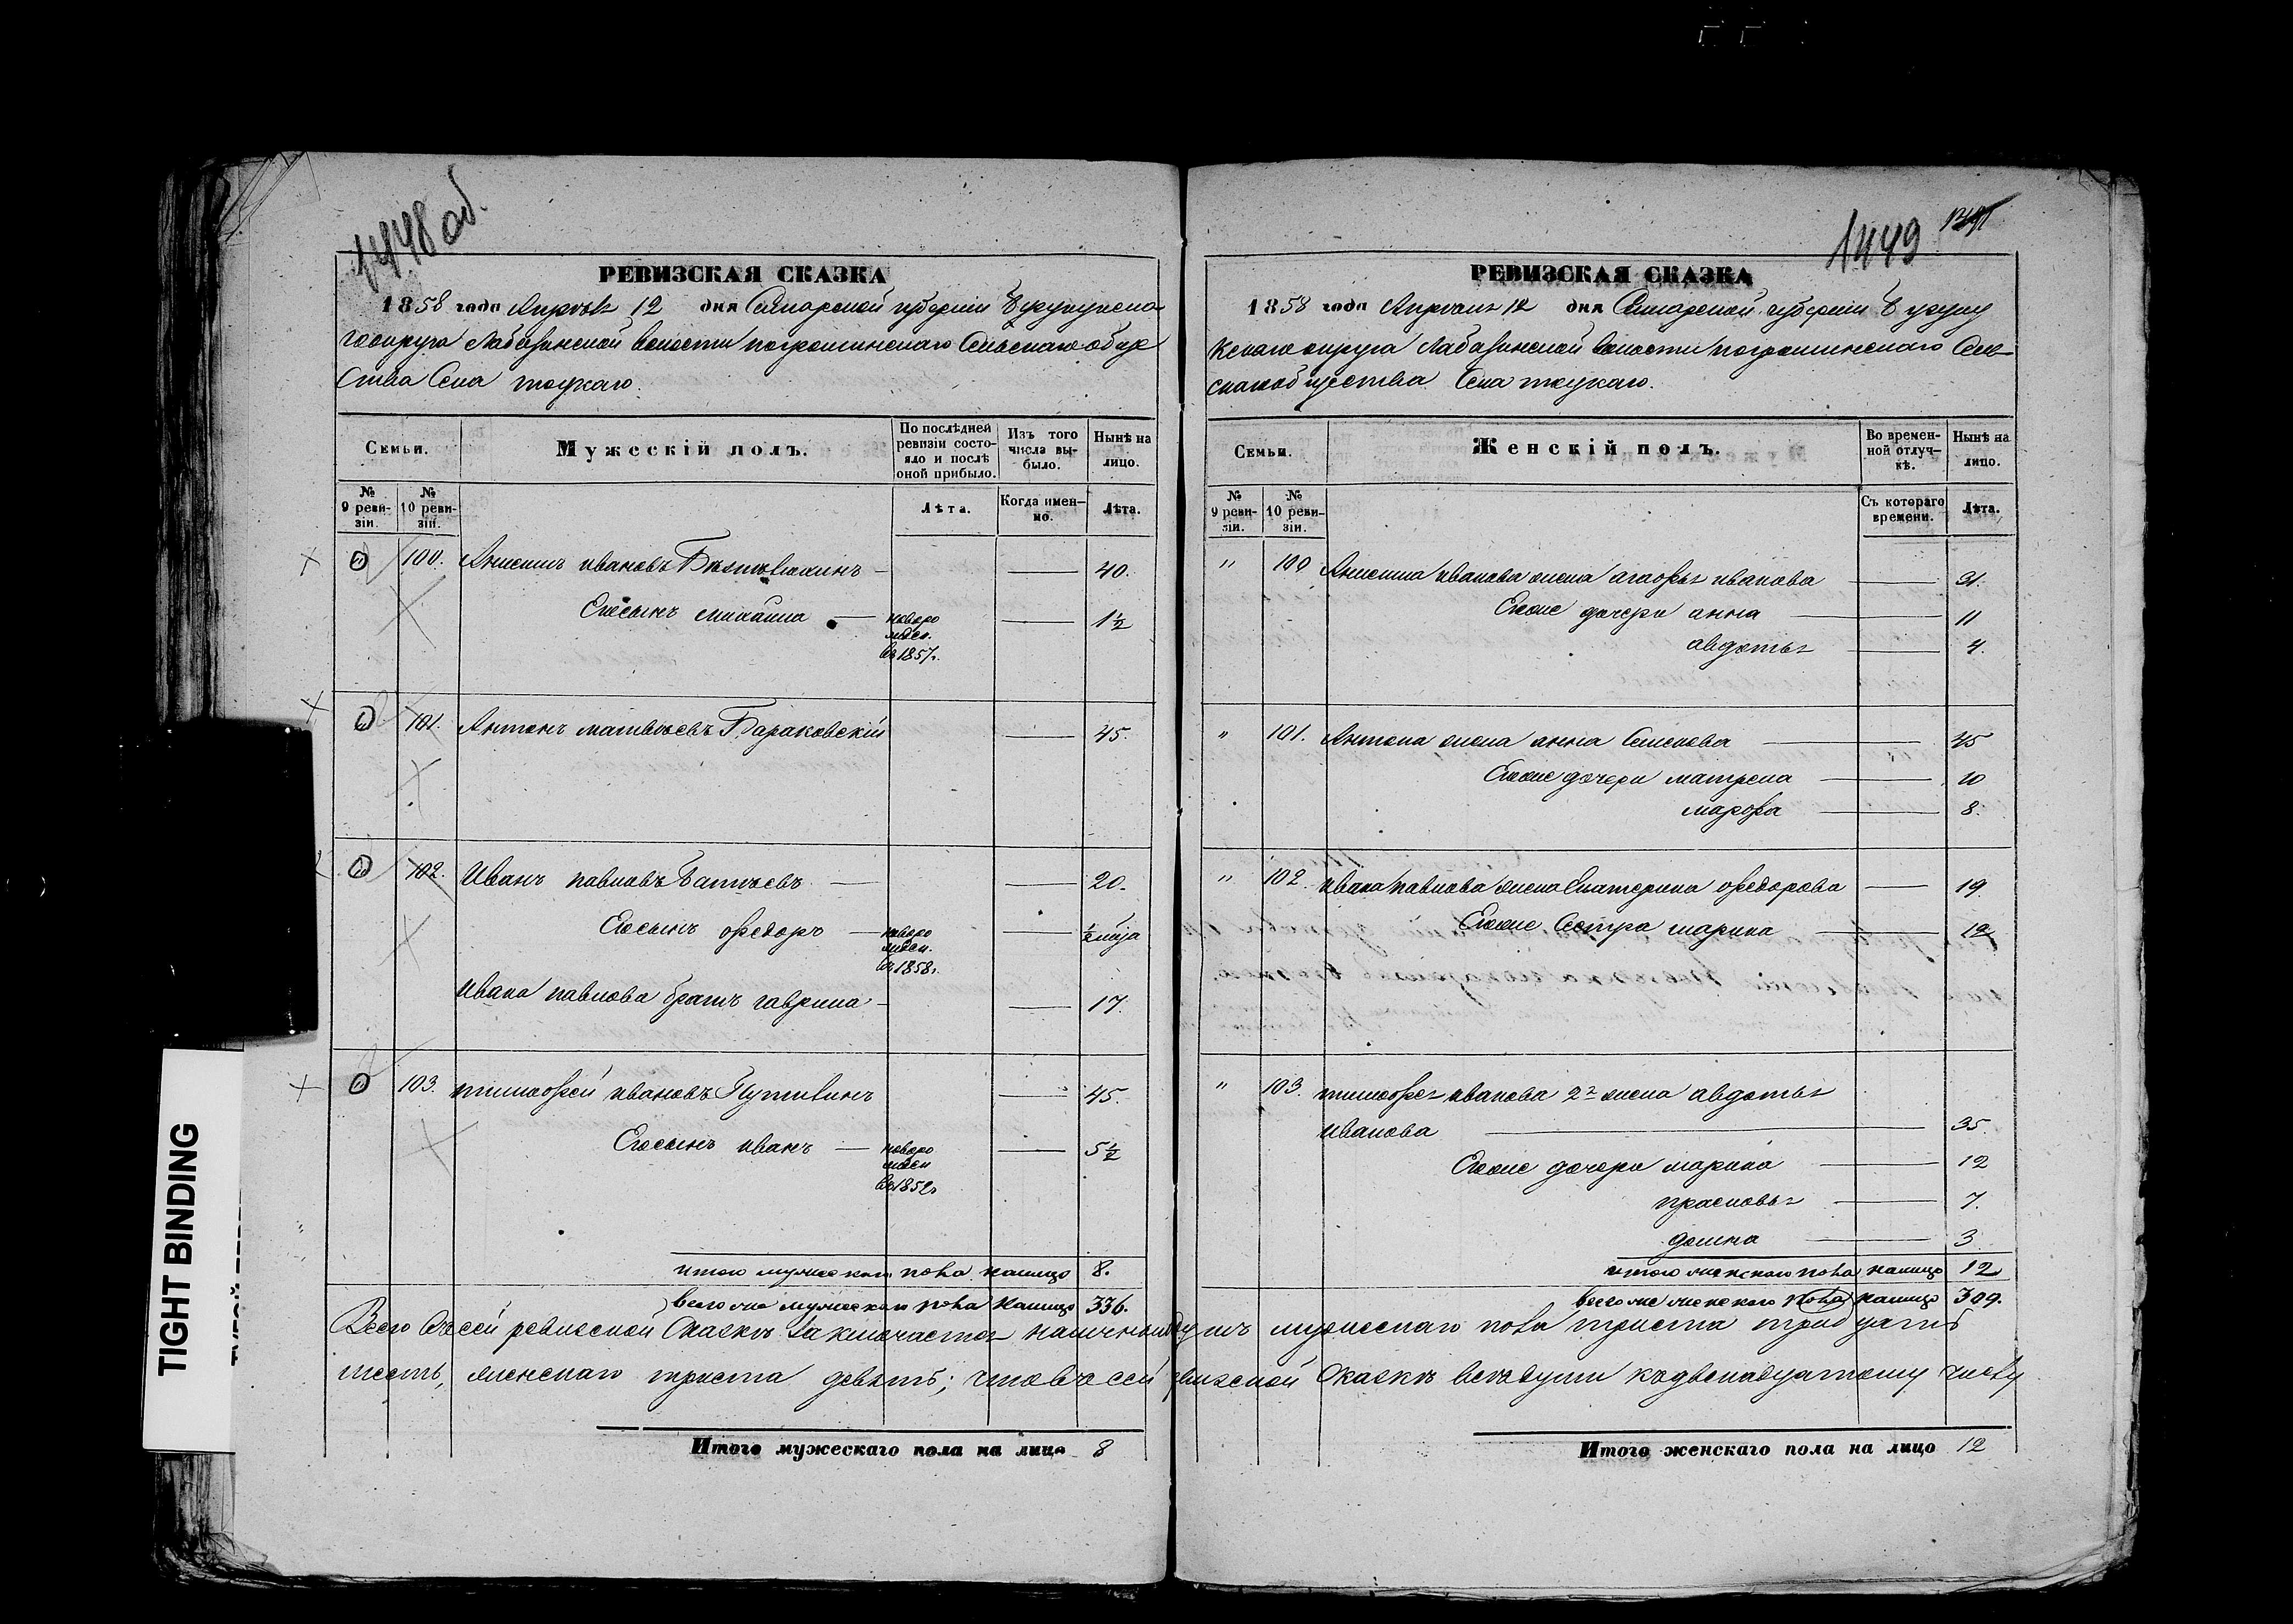 1448 об.
РЕВИЗСКАЯ СКАЗКА
1858 года Апреля 12 дня Самарской губернии Бузулукска
го округа Лабазинской волости погроминскаго Сельскаго обще
ства Села тоцкаго.
Семьи.
Мужескій полъ.
По послѣдней ревизіи состояло и послѣ оной прибыло.
Изъ того числа выбыло.
Нынѣ на лицо.
№ 9 ревизіи.
№ 10 ревизіи.
Лѣта.
Когда именно.
Лѣта.
" 100. Анисимъ ивановъ — 40.
Егосынъ михаила — новоро
жден.
въ 1857г. — 1½
" 101. Антонъ матвѣевъ Бараковскій — 45.
" 102. Иванъ павловъ Батаевъ — 20.
Егосынъ ѳедоръ — новоро
жден.
въ 1858г. — ½
Ивана павлова братъ гаврила — 17.
" 103. тимоѳей ивановъ Путивинъ — 45.
Егосынъ иванъ — новоро
жден
въ 1852г — 5½
итого мужескаго пола налицо 8.
всего же мужескаго пола налицо 336.
1449
РЕВИЗСКАЯ СКАЗКА
1858 года Апреля 12 дня Самарской губерніи Бузулу
кскаго округа Лабазинской волости погроминскаго Сель
скагообщества Села тоцкаго.
Семьи.
Женскій полъ.
Во временной отлучкѣ.
Нынѣ на лицо.
№ 9 ревизіи.
№ 10 ревизіи.
Съ котораго времени.
Лѣта.
" 100 Анисима иванова жена агаѳья иванова — 31.
Егоже дочери анна — 11
авдотья — 4.
" 101. Антона жена анна Семенова — 45
Егоже дочери матрена — 10
марѳа — 8.
" 102. ивана павлова жена Екатерина ѳедорова — 19
Егоже Сестра марина — 12
" 103. тимоѳея иванова 2я жена авдотья
иванова — 35.
Егоже дочери марина — 12
прасковья — 7.
домна — 3
итого женскаго пола налицо 12
всего же женскаго пола налицо 309.
Всего въсей ревизской Сказкѣ заключается наличныхдушъ мужескаго пола триста тридцать
шесть, женскаго триста девять; чтовъ сей ревизской Сказкѣ всѣдуши къдвенадцатому числу
Итого мужескаго пола на лицо 8
Итого женскаго пола на лицо 12
TIGHT BINDING